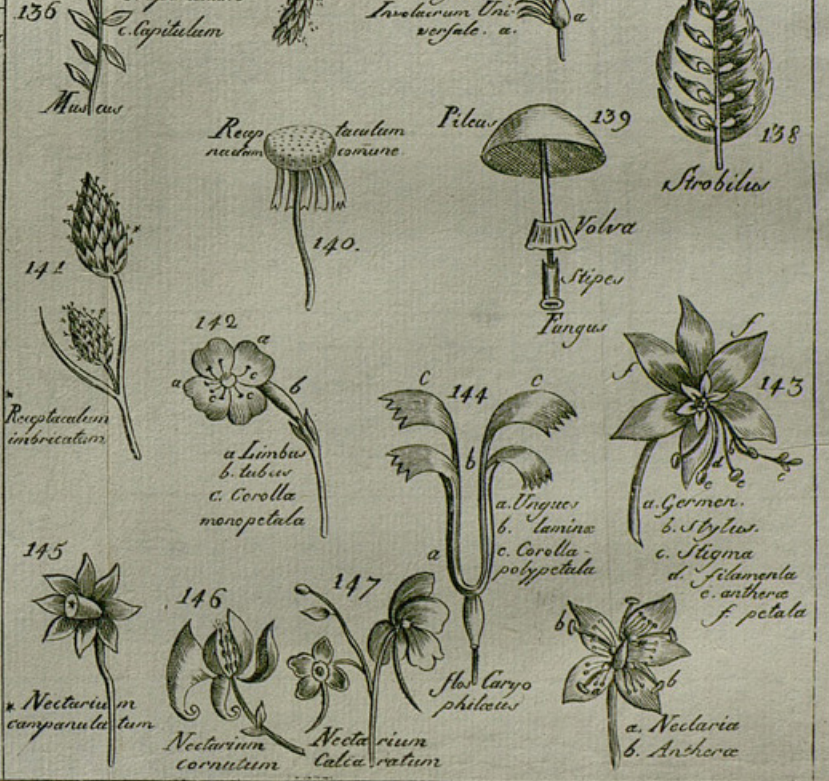 136
c. Capitulum
Muscus
Involucrum Uni-
versale. a.
a
138
Strobilus
Recep taculum
nudum comune.
140.
Pileus 139
Volva
Stipes
Fungus
141
*
*
Receptaculum
imbricatum
142
a
a
b
c
c
c
a Limbus
b. tubus
c. Corolla
monopetala
c 144 c
b
a
a. Ungues
b. laminæ
c. Corolla -
polypetala
flos Caryo
philæus
f
f
143
d
e
e
c
a. Germen.
b. Stylus.
c. Stigma
d. filamenta
e. antheræ
f. petala
145
*
* Nectarium
campanulatum
146
Nectarium
cornutum
147
Nectarium
Calcaratum
b
a
b
a. Nectaria
b. Antheræ